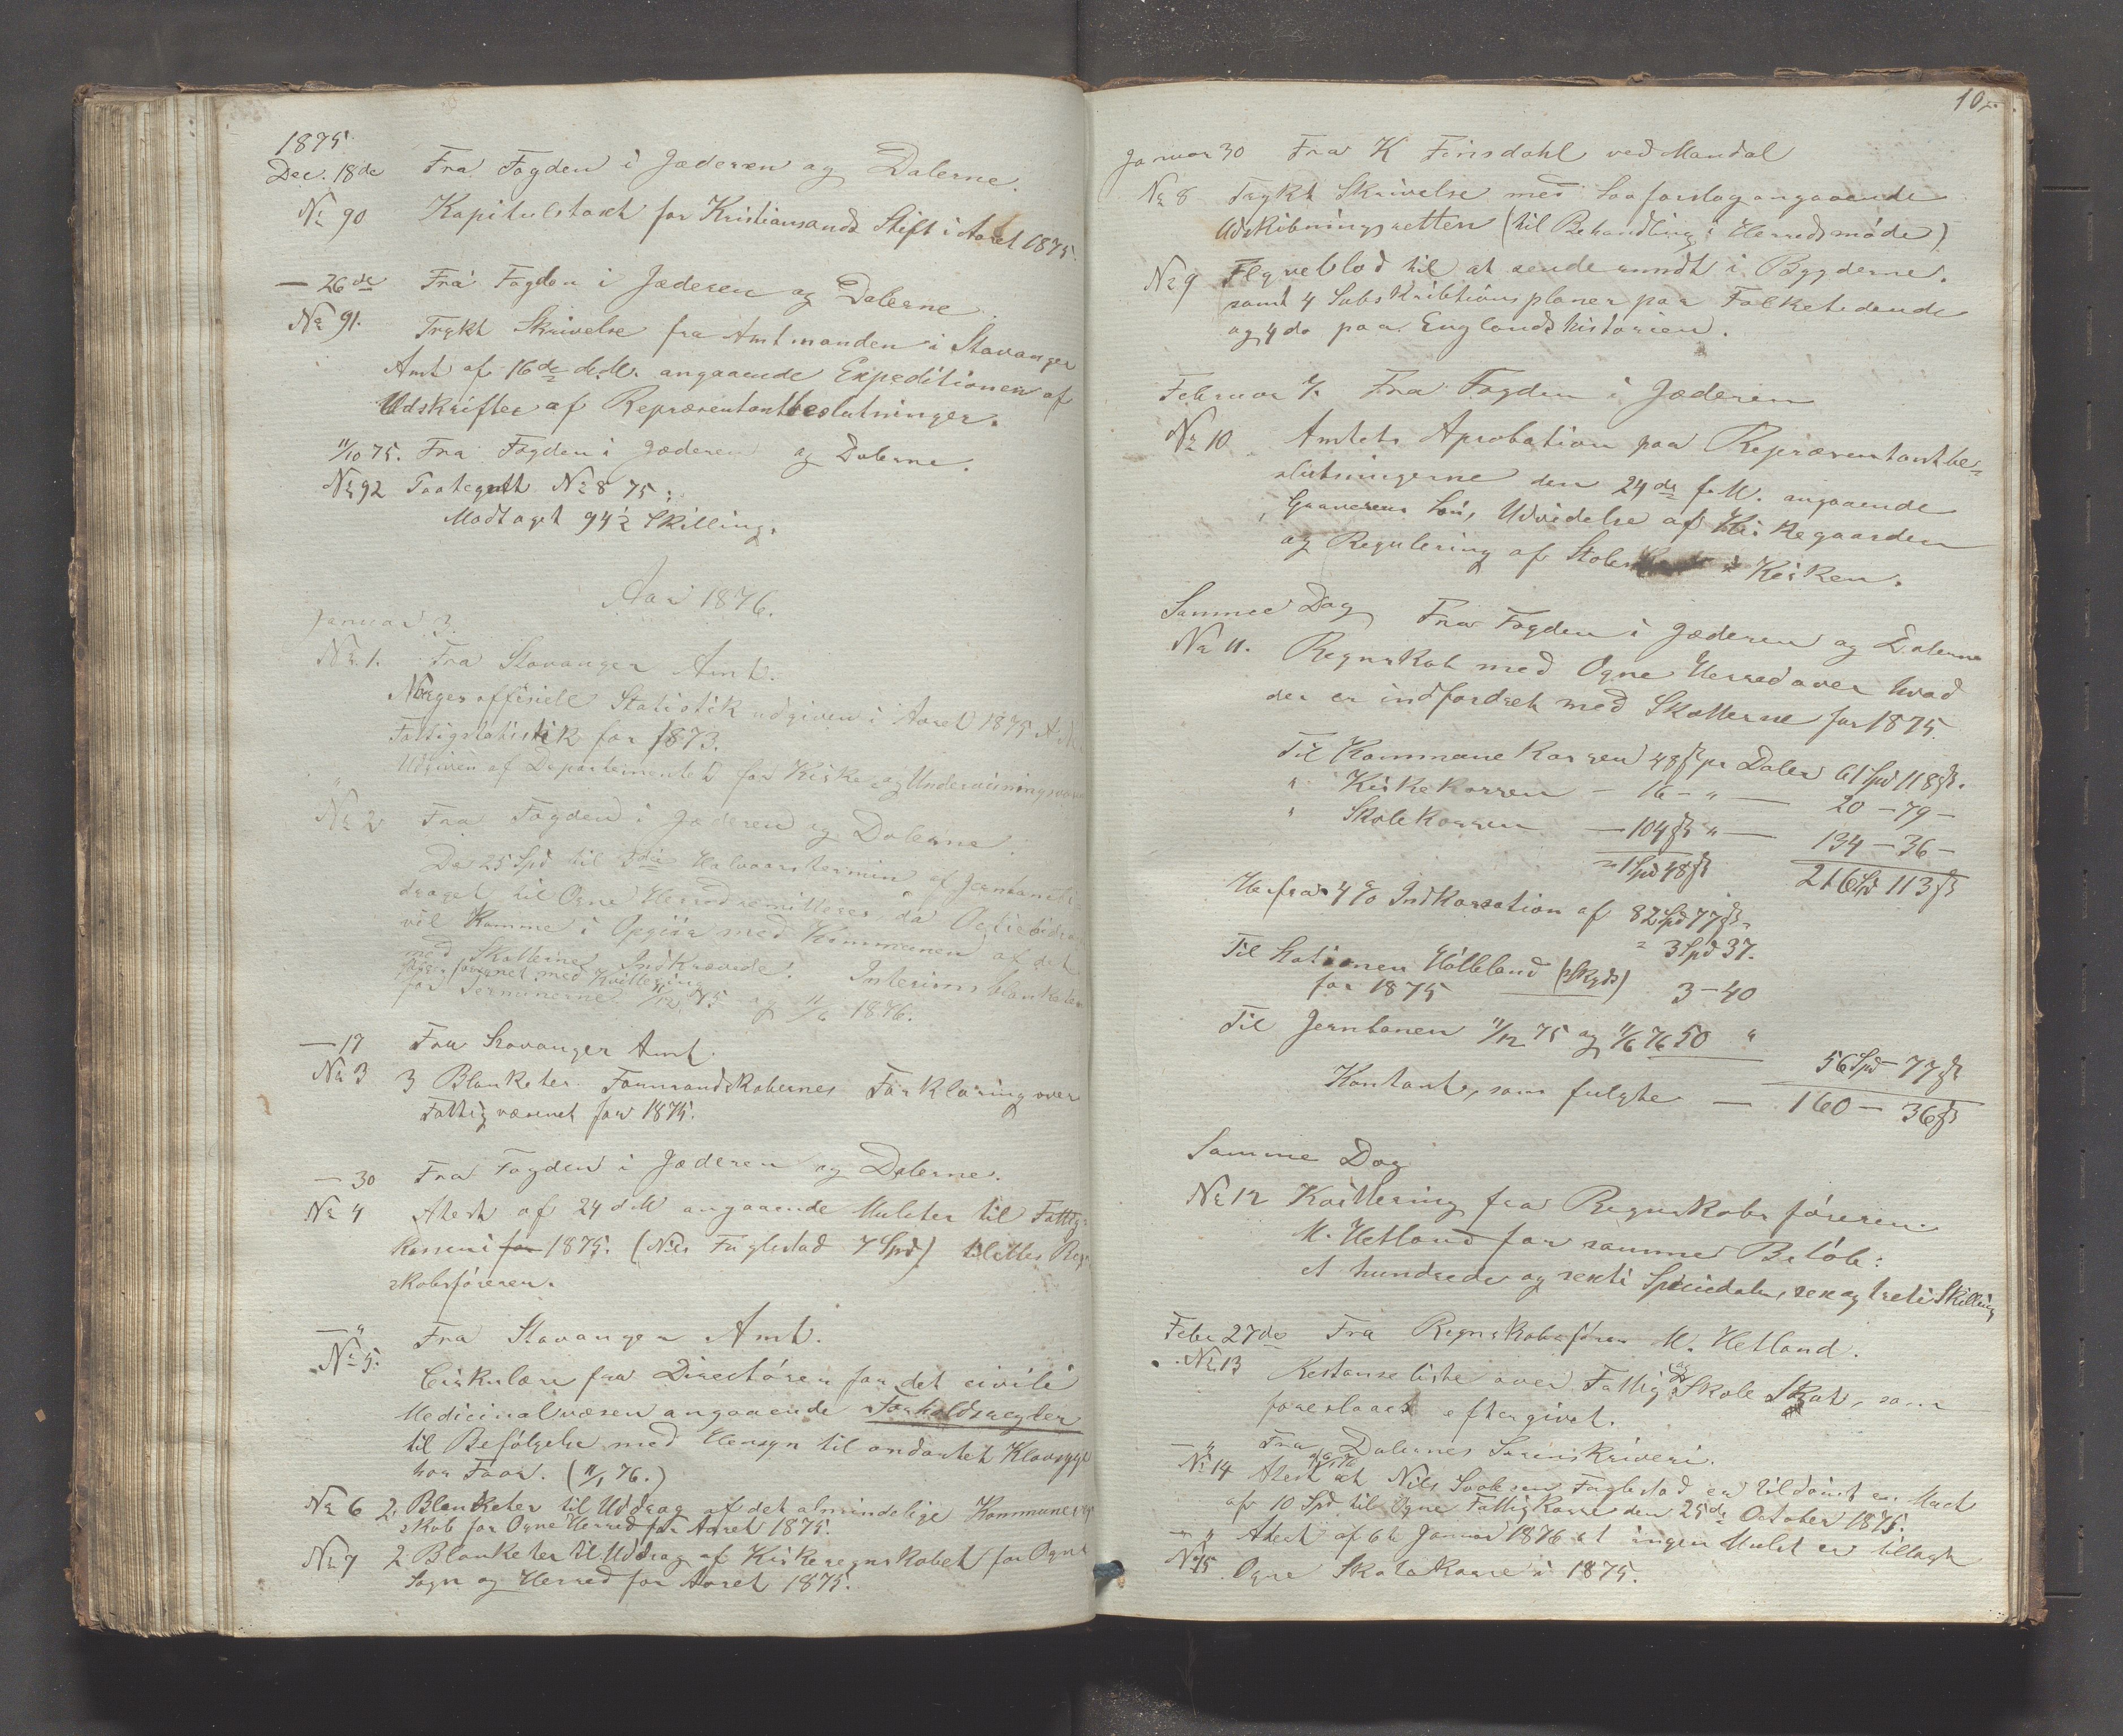 1875.
Dec. 18de Fra Fogden i Jæderen og Dalerne.
No 90 Kapitulstaxt for Kristiansands Stift i Aaret 1875.
— 26de Fra Fogden i Jæderen og Dalerne.
No 91. Trykt Skrivelse fra Amtmanden i Stavanger
Amt af 16de d. M. angaaende Expeditionen af
Udskrifter af Repræsentantbeslutninger.
11/10 75. Fra Fogden i Jæderen og Dalerne.
No 92 No 8 75:
Modtaget 94½ Skilling.
Aar 1876.
Januar 3.
No 1. Fra Stavanger Amt.
Norges officielle Statistik udgiven i Aaret 1875
Fattigstatistik for 1873.
Udgiven af Departementet for Kirke- og
"
No 2 Fra Fogden i Jæderen og Dalerne.
De 25 Spd til Halvaarstermin af
draget til Ogne Herred remitteres, da
vil komme i Opgjør med Kommunen af det
med Skatterne Indkrævede. Interimsblanketer
følger forsynet med Kvittering
for Terminerne 11/12 75 og 11/6 1876.
— 17 Fra Stavanger Amt.
No 3 3 Blanketer Formandskabernes Forklaring over
Fattigvæsenet for 1875.
— 30 Fra Fogden i Jæderen og Dalerne.
No 4 Atest af 24 d M angaaende Mulcter til Fattig-
kassen i for 1875. (Nils Fuglestad 7 Spd)
skabsføreren.
— " Fra Stavanger Amt.
No 5. Cirkulære fra Directøren for det civile
Medicinalvæsen angaaende Forholdsregler
til Befølgelse med Hensyn til ondartet Klovsyge
hos Faar. (11/1 76.)
No 6 2 Blanketer til Uddrag af det almindelige
skab for Ogne Herred for Aaret 1875.
No 7 2 Blanketer til Uddrag af Kirkeregnskabet for Ogne
Sogn og Herred for Aaret 1875.
Januar 30 Fra K Finsdahl ved Mandal
No 8 Trykt Skrivelse med Lovforslag angaaende
Udskibningsretten (til Behandling i Herredsmøde)
No 9 Flyveblad til at sende rundt i Bygderne.
samt 4 Subskribtionsplaner paa Folketidende
og 4 do paa Englandshistorien.
Februar Fra Fogden i Jæderen
No 10. Amtets Aprobation paa Repræsentantbe-
slutningerne den 24de f. M. angaaende
Graverens Løn, Udvidelse af Kirkegaarden
og Regulering af i Kirken.
Samme Dag Fra Fogden i Jæderen og Dalerne
No 11. Regnskab med Ogne Herred over hvad
der er indfordret med Skatterne for 1875.
Til Kommunekassen 48 ß pr Daler 61 Spd 118 ß.
" Kirkekassen — 16 — " — 20 — 79 —
" Skolekassen — 104 ß " — 134 — 36 —
= 1 Spd 48 ß 216 Spd 113 ß
Herfra 4 % Inkassation af 82 Spd 77 ß
= 3 Spd 37.
Til Stationen Hølleland (Skyds)
for 1875 3 — 40
Til Jerntonen 11/12 75 og 11/6 76 50 "
56 Spd — 77 ß
Kontant, som fulgte — 160 — 36 ß
Samme Dag
No 12 Kvittering fra Regnskabsføreren
M. Hetland for samme Beløb:
et hundrede og sexti Speciedaler, sex og treti Skilling
Febr 27de Fra Regnskabsfører M. Hetland.
No 13 Restanseliste over Fattig og Skole Skat, som
foreslaaes eftergivet.
— " Fra Dalernes Sorenskriveri.
No 14 Atest at Nils Fuglestad er tildømt en Mulct
af 10 Spd til Ogne Fattigkasse den 25de October 1875.
— " Atest af 6te Januar 1876 at ingen Mulct er tillagt
No 15. Ogne Skolekasse i 1875.